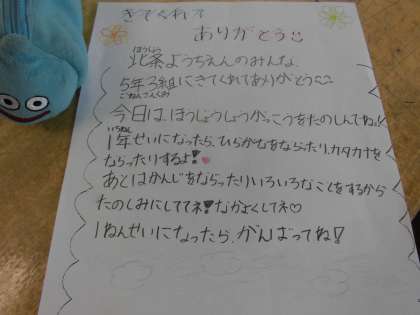 きてくれて
ありがとう
ほうじょう
北条ようちえんのみんな、
5年3組にきてくれてありがとう
ごねんさんくみ
今日は、ほうじょうしょうがっこうをたのしんでね!
いちねん
1年せいになったら、ひらがなをならったり、カタカナを
ならったりするよ!
あとはかんじをならったりいろいろなことをするから
たのしみにしててネ!なかよくしてネ♡
1ねんせいになったら、がんばってね!